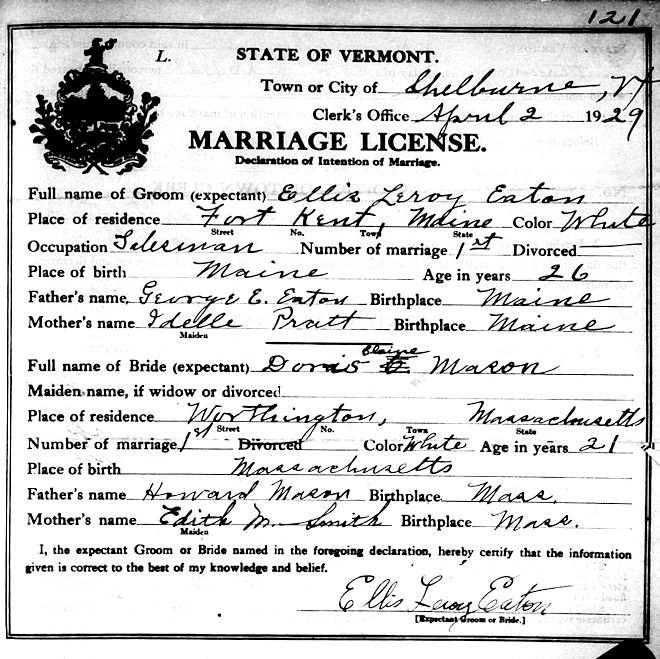 121
L.
STATE OF VERMONT.
Town or City of Shelburne, Vt
Clerk's Office April 2 1929
MARRIAGE LICENSE.
Declaration of Intention of Marriage.
Full name of Groom (expectant) Ellis Leroy Eaton
Place of residence Fort Kent, Maine Color White
Street No. Town State
Occupation Salesman Number of marriage 1st Divorced
Place of birth Maine Age in years 26
Father's name, George E. Eaton Birthplace Maine
Mother's name Idelle Pratt Birthplace Maine
Maiden
Elaine
Full name of Bride (expectant) Doris E. Mason
Maiden name, if widow or divorced
Place of residence Worthington, Massachusetts
Street No. Town State
Number of marriage 1st Divorced Color White Age in years 21
Place of birth Massachusetts
Father's name Howard Mason Birthplace Mass.
Mother's name Edith M. Smith Birthplace Mass.
Maiden
I, the expectant Groom or Bride named in the foregoing declaration, hereby certify that the information
given is correct to the best of my knowledge and belief.
Ellis Leroy Eaton
[Expectant Groom or Bride.]